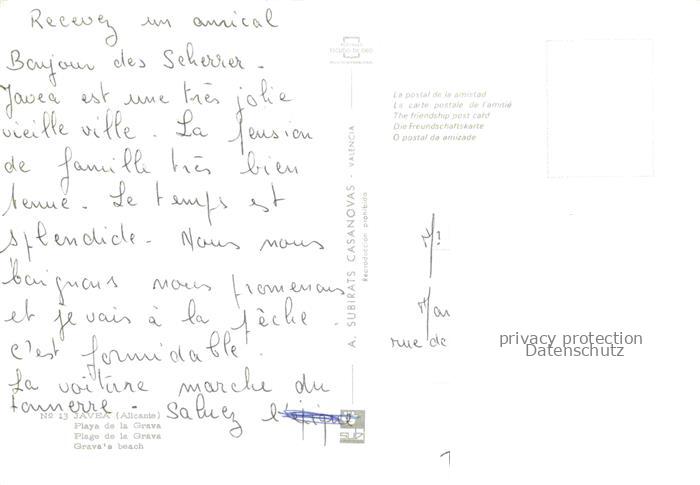 Recevez un amical
Bonjour des Scherrer.
Javea est une très jolie
vieille ville. La pension
de famille très bien
tenue. Le temps est
splendide. Nous nous
baignons nous promenons
et je vais à la pêche.
c'est formidable.
La voiture marche du
tonnerre. Saluez l'équipe
Nº 13 JAVEA (Alicante)
Playa de la Grava
Plage de la Grava
Grava's beach
ESCUDO DE ORO
A. SUBIRATS CASANOVAS - VALENCIA
Reproducción prohibida
La postal de la amistad
La carte postale de l'amitié
The friendship post card
Die Freundschaftskarte
O postal da amizade
rue de
privacy protection
Datenschutz